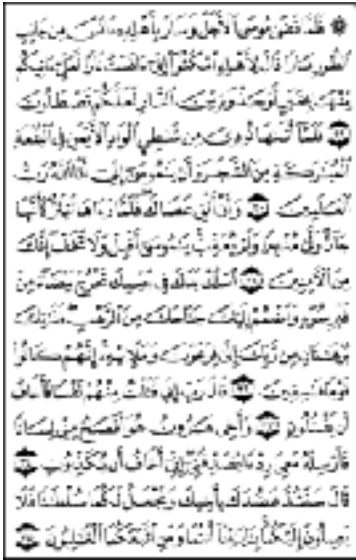 ۞ فَلَمَّا قَضَىٰ مُوسَى ٱلْأَجَلَ وَسَارَ بِأَهْلِهِۦٓ ءَانَسَ مِن جَانِبِ
ٱلطُّورِ نَارًا قَالَ لِأَهْلِهِ ٱمْكُثُوٓا۟ إِنِّىٓ ءَانَسْتُ نَارًا لَّعَلِّىٓ ءَاتِيكُم
مِّنْهَا بِخَبَرٍ أَوْ جَذْوَةٍ مِّنَ ٱلنَّارِ لَعَلَّكُمْ تَصْطَلُونَ
۝٢٩ فَلَمَّآ أَتَىٰهَا نُودِىَ مِن شَٰطِئِ ٱلْوَادِ ٱلْأَيْمَنِ فِى ٱلْبُقْعَةِ
ٱلْمُبَٰرَكَةِ مِنَ ٱلشَّجَرَةِ أَن يَٰمُوسَىٰٓ إِنِّىٓ أَنَا ٱللَّهُ رَبُّ
ٱلْعَٰلَمِينَ ۝٣٠ وَأَنْ أَلْقِ عَصَاكَ فَلَمَّا رَءَاهَا تَهْتَزُّ كَأَنَّهَا
جَآنٌّ وَلَّىٰ مُدْبِرًا وَلَمْ يُعَقِّبْ يَٰمُوسَىٰٓ أَقْبِلْ وَلَا تَخَفْ إِنَّكَ
مِنَ ٱلْءَامِنِينَ ۝٣١ ٱسْلُكْ يَدَكَ فِى جَيْبِكَ تَخْرُجْ بَيْضَآءَ مِنْ
غَيْرِ سُوٓءٍ وَٱضْمُمْ إِلَيْكَ جَنَاحَكَ مِنَ ٱلرَّهْبِ فَذَٰنِكَ
بُرْهَٰنَانِ مِن رَّبِّكَ إِلَىٰ فِرْعَوْنَ وَمَلَإِي۟هِۦٓ إِنَّهُمْ كَانُوا۟
قَوْمًا فَٰسِقِينَ ۝٣٢ قَالَ رَبِّ إِنِّى قَتَلْتُ مِنْهُمْ نَفْسًا فَأَخَافُ
أَن يَقْتُلُونِ ۝٣٣ وَأَخِى هَٰرُونُ هُوَ أَفْصَحُ مِنِّى لِسَانًا
فَأَرْسِلْهُ مَعِىَ رِدْءًا يُصَدِّقُنِىٓ إِنِّىٓ أَخَافُ أَن يُكَذِّبُونِ ۝٣٤
قَالَ سَنَشُدُّ عَضُدَكَ بِأَخِيكَ وَنَجْعَلُ لَكُمَا سُلْطَٰنًا فَلَا
يَصِلُونَ إِلَيْكُمَا بِـَٔايَٰتِنَآ أَنتُمَا وَمَنِ ٱتَّبَعَكُمَا ٱلْغَٰلِبُونَ ۝٣٥